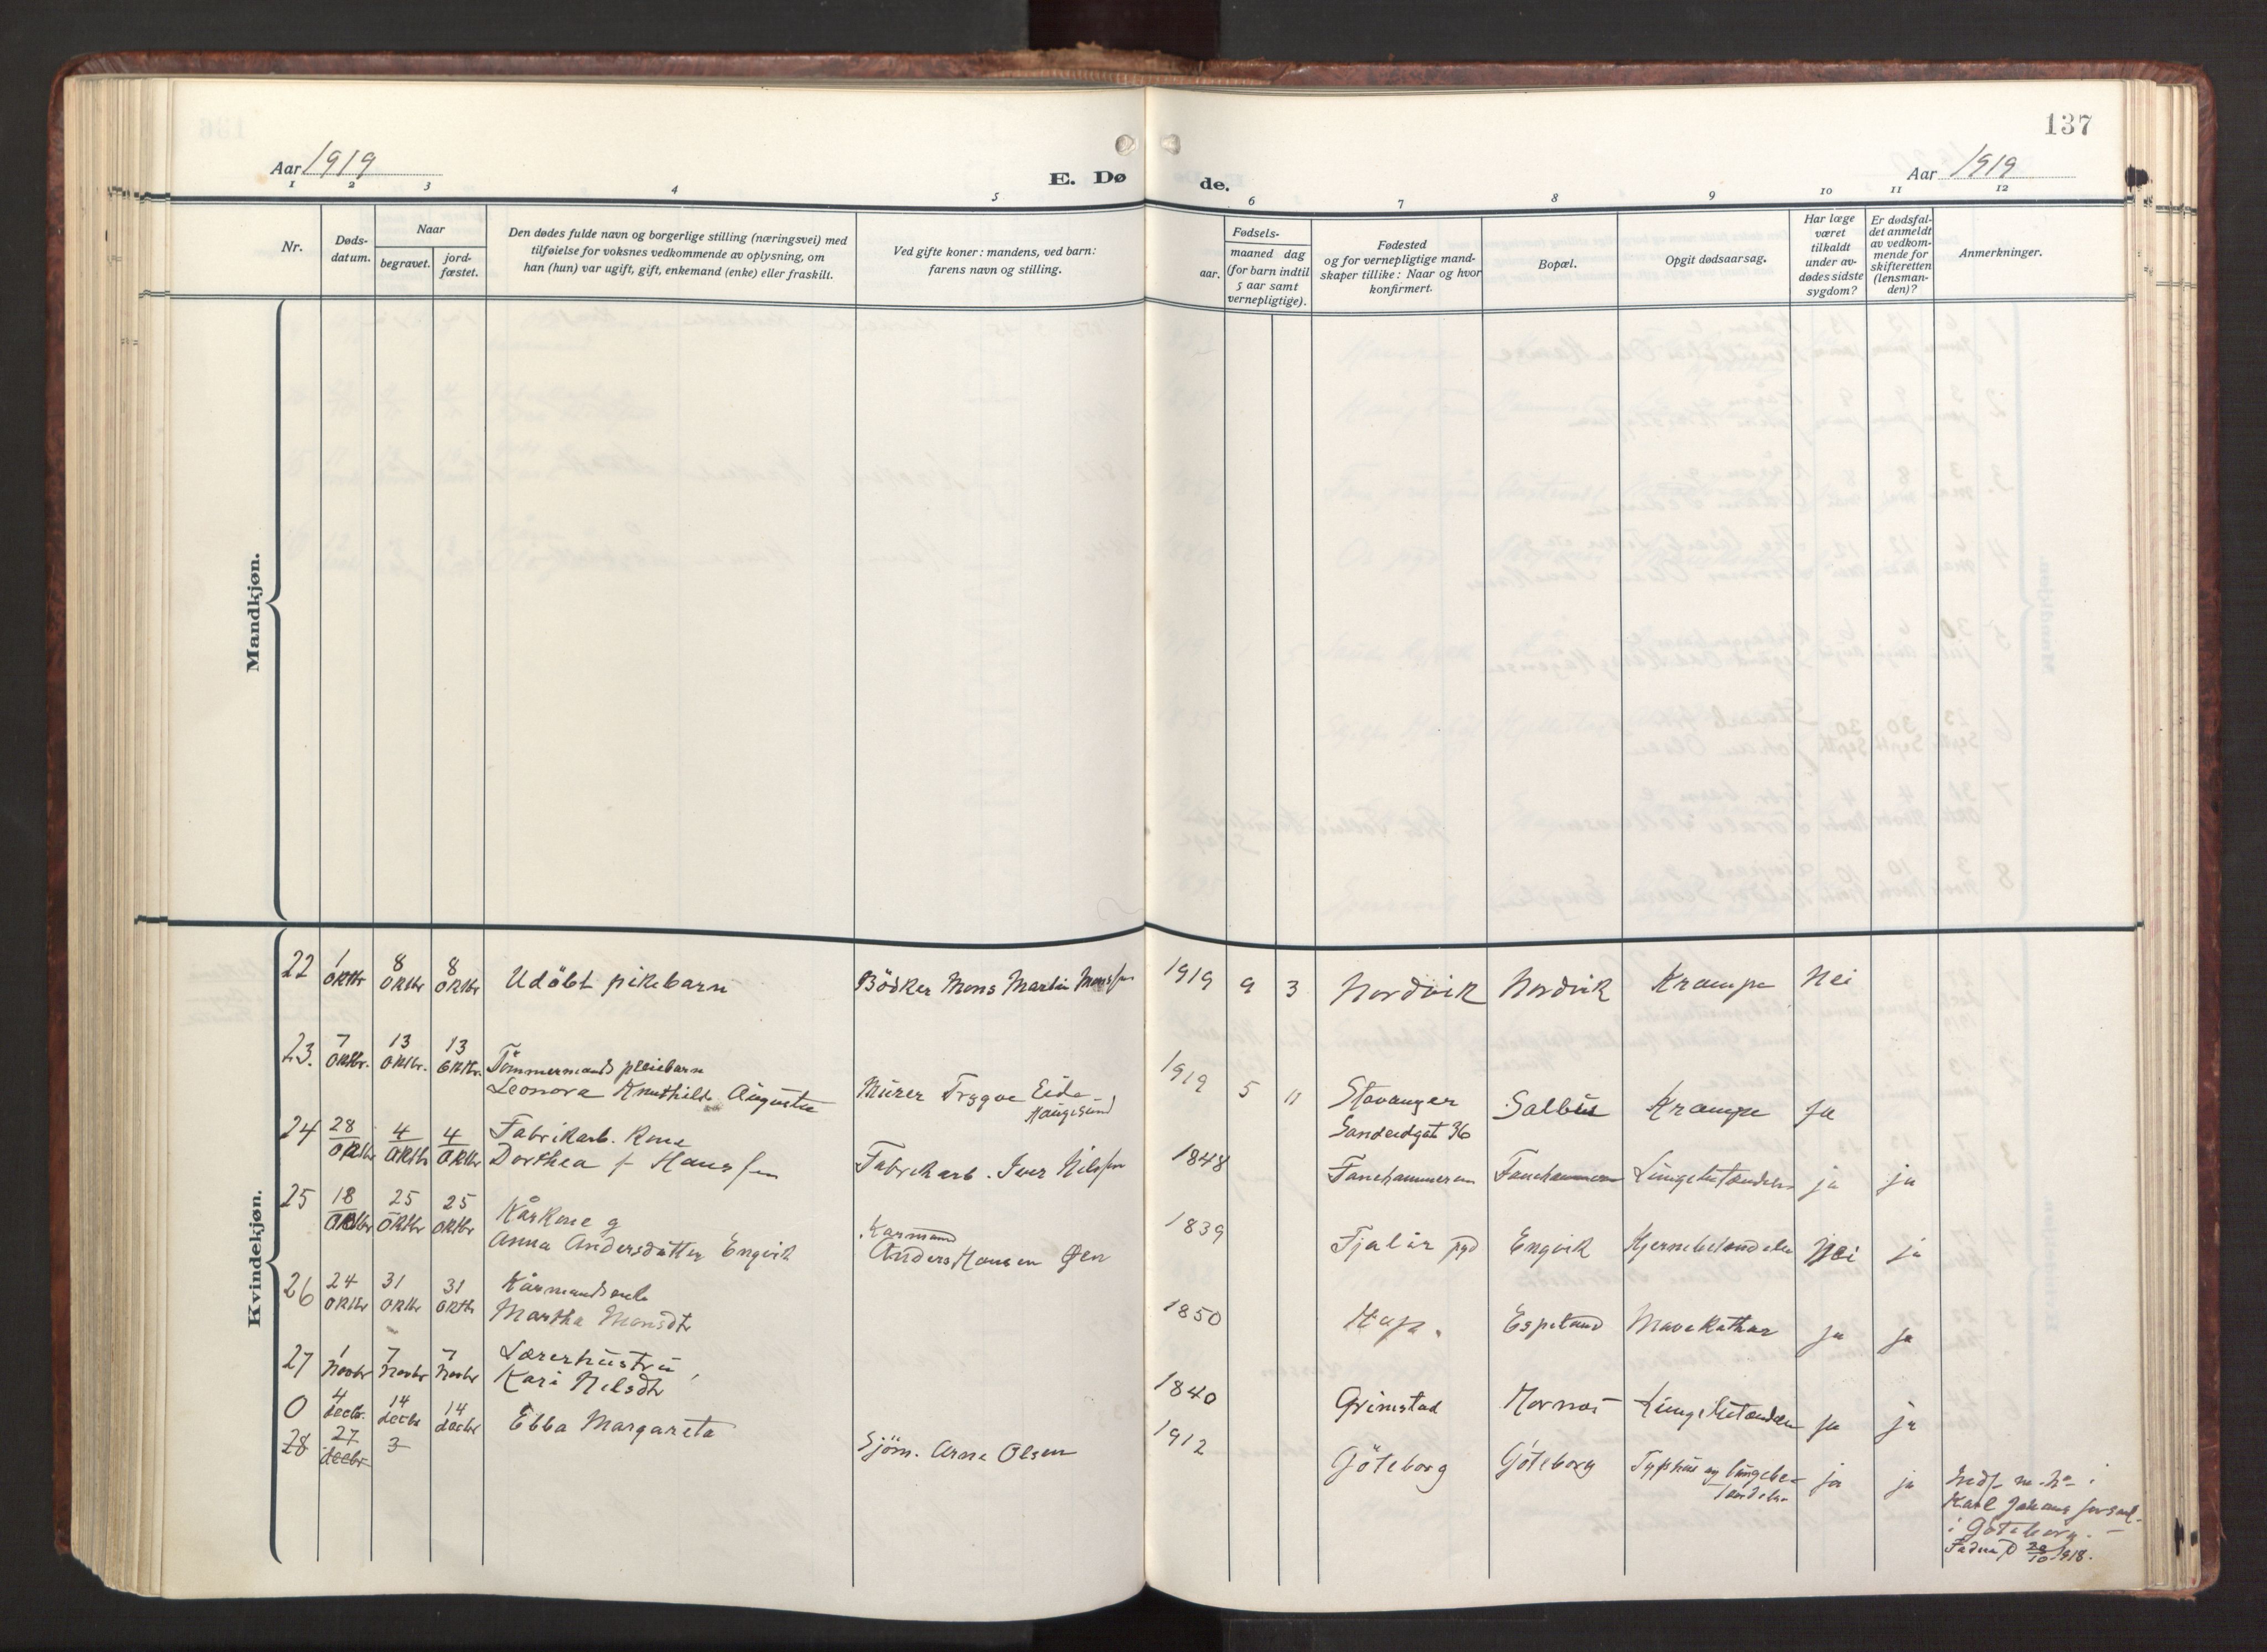 137
Aar 1919
E. Dø
de.
Aar 1919
1 2 3 4 5 6 7 8 9 10 11 12
Nr.
Døds-
datum.
Naar
begravet.
jord-
fæstet.
Den dødes fulde navn og borgerlige stilling (næringsvei) med
tilføielse for voksnes vedkommende av oplysning, om
han (hun) var ugift, gift, enkemand (enke) eller fraskilt.
Ved gifte koner: mandens, ved barn:
farens navn og stilling.
Fødsels-
aar.
maaned dag
(for barn indtil
5 aar samt
vernepligtige).
Fødested
og for vernepligtige mand-
skaper tillike: Naar og hvor
konfirmert.
Bopæl.
Opgit dødsaarsag.
Har læge
været
tilkaldt
under av-
dødes sidste
sygdom?
Er dødsfal-
det anmeldt
av vedkom-
mende for
skifteretten
(lensman-
den)?
Anmerkninger.
Mandkjøn.
Kvindekjøn.
22 1 oktbr 8 oktbr 8 oktbr Udöbt pikebarn Bödker Mons Martin Monssen 1919 9 3 Nordvik Nordvik Krampe Nei
23. 7 oktbr. 13 oktbr. 13 oktbr. Tömmermands pleiebarn
Leonora Knuthilde Augusta Murer Trygve Eide 1919 5 11 Stavanger Salbu Krampe Ja
Haugesund
36
24 28 oktbr 4 oktbr 4 oktbr Fabrikarb. kone
Dorthea f Hanssen Fabrikarb. Iver Nilssen 1848 Fanehammeren Fanehammeren Lungebetændelse ja ja
25 18 oktbr 25 oktbr 25 oktbr Kårkone g
Anna Andersdatter Engvik Karmand
Anders Hansen 1839 Fjaler pgd Engvik Nei ja
26 24 oktbr 31 oktbr 31 oktbr Kårmandsenke
Martha Monsdtr 1850 Espeland Mavekathar ja ja
27 1 Novbr 7 Novbr 7 Novbr Lærerhustru
Kari Nilsdtr 1840 Grimstad Mornes Lungebetændelse ja ja
0 4 decbr. 14 decbr 14 decbr Ebba Margareta Sjöm. Arne Olsen 1912 Göteborg Göteborg Typhus og lungebe-
tændelse ja ja
28 27 decbr 3
Karl Johans
i Göteborg.
28/10 1918.